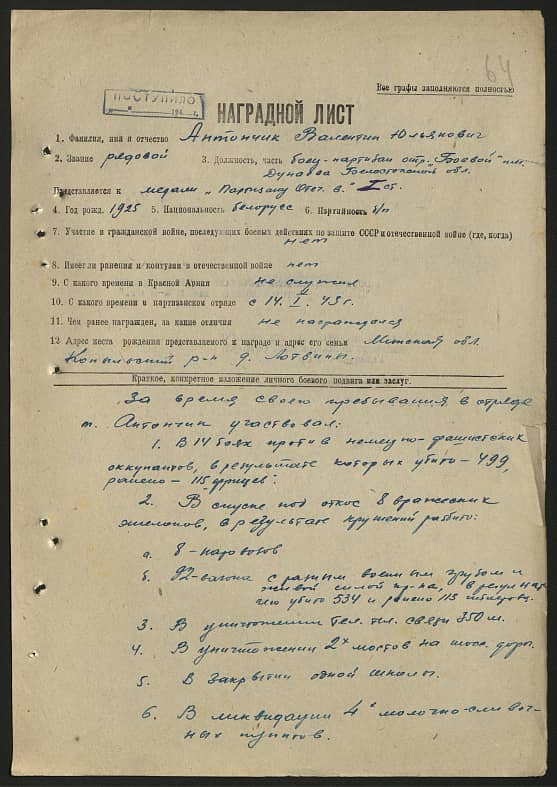 64
Все графы заполняются полностью
ПОСТУПИЛО
НАГРАДНОЙ ЛИСТ
1. Фамилия, имя и отчество Антончик Валентин Юльянович
2. Звание рядовой 3. Должность, часть боец-партизан отр. "Боевой" им.
Дунаева Белостокской обл.
Представляется к медали "Партизану Отеч. в." I ст.
4. Год рожд. 1925 5. Национальность белорусс 6. Партийность б/п
7. Участие в гражданской войне, последующих боевых действиях по защите СССР и отечественной войне (где, когда)
нет
8. Имеет ли ранения и контузии в отечественной войне нет
9. С какого времени в Красной Армии не служил
10. С какого времени в партизанском отряде с 14. I. 43 г.
11. Чем ранее награжден, за какие отличия не награждался
12 Адрес места рождения представляемого к награде и адрес его семьи Минская обл.
Копыльский р-н д. Лотвины.
Краткое, конкретное изложение личного боевого подвига или заслуг.
За время своего пребывания в отряде
т. Антончик участвовал:
1. В 14 боях против немецко-фашистских
оккупантов, в результате которых убито - 499,
ранено - 115 "фрицев".
2. В спуске под откос 8 вражеских
эшелонов, в результате крушений разбито:
а. 8 - паровозов
б. 92 - вагона с разным военным грузом и
живой силой пр-ка, в результате
чего убито 534 и ранено 113 гитлеровц.
3. В уничтожении тел. тел. связи 350 м.
4. В уничтожении 2х мостов на шосс. дор.
5. В закрытии одной школы.
6. В ликвидации 4х молочно-сливоч-
ных пунктов.